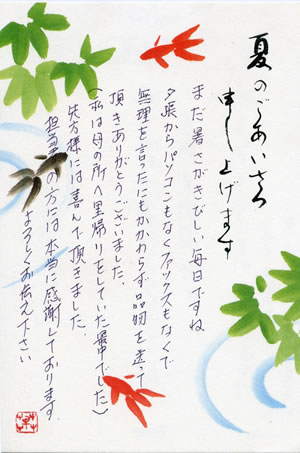 夏のごあいさつ
申し上げます
まだ暑さがきびしい毎日ですね
夕張からパソコンもなくファックスもなくで
無理を言ったにもかかわらず品物を送って
頂きありがとうございました。
(私は母の所へ里帰りをしていた最中でした)
先方様には喜んで頂きました。
担当の方には本当に感謝しております。
よろしくお伝え下さい